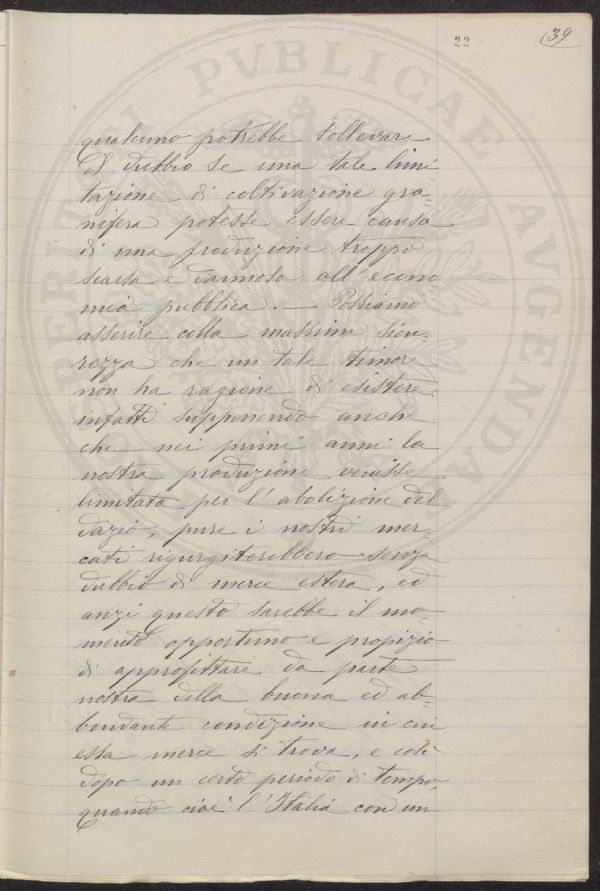 22 39
qualcuno potrebbe sollevare
il dubbio se una tale limi
tazione di coltivazione gra=
nifera potesse essere causa
di una produzione troppo
scarsa e dannosa all'econo
mia pubblica. — Possiamo
asserire colla massima sicu=
rezza che un tale timore
non ha ragione di esistere;
infatti supponendo anche
che nei primi anni la
nostra produzione venisse
limitata per l'abolizione del
dazio, pure i nostri mer=
cati rigurgiterebbero senza
dubbio di merce estera, ed
anzi questo sarebbe il mo=
mento opportuno e propizio
di approfittare da parte
nostra della buona ed ab=
bondante condizione in cui
essa merce si trova, e così
dopo un certo periodo di tempo,
quando cioè l'Italia con un
PVBLICAE AVGENDAE